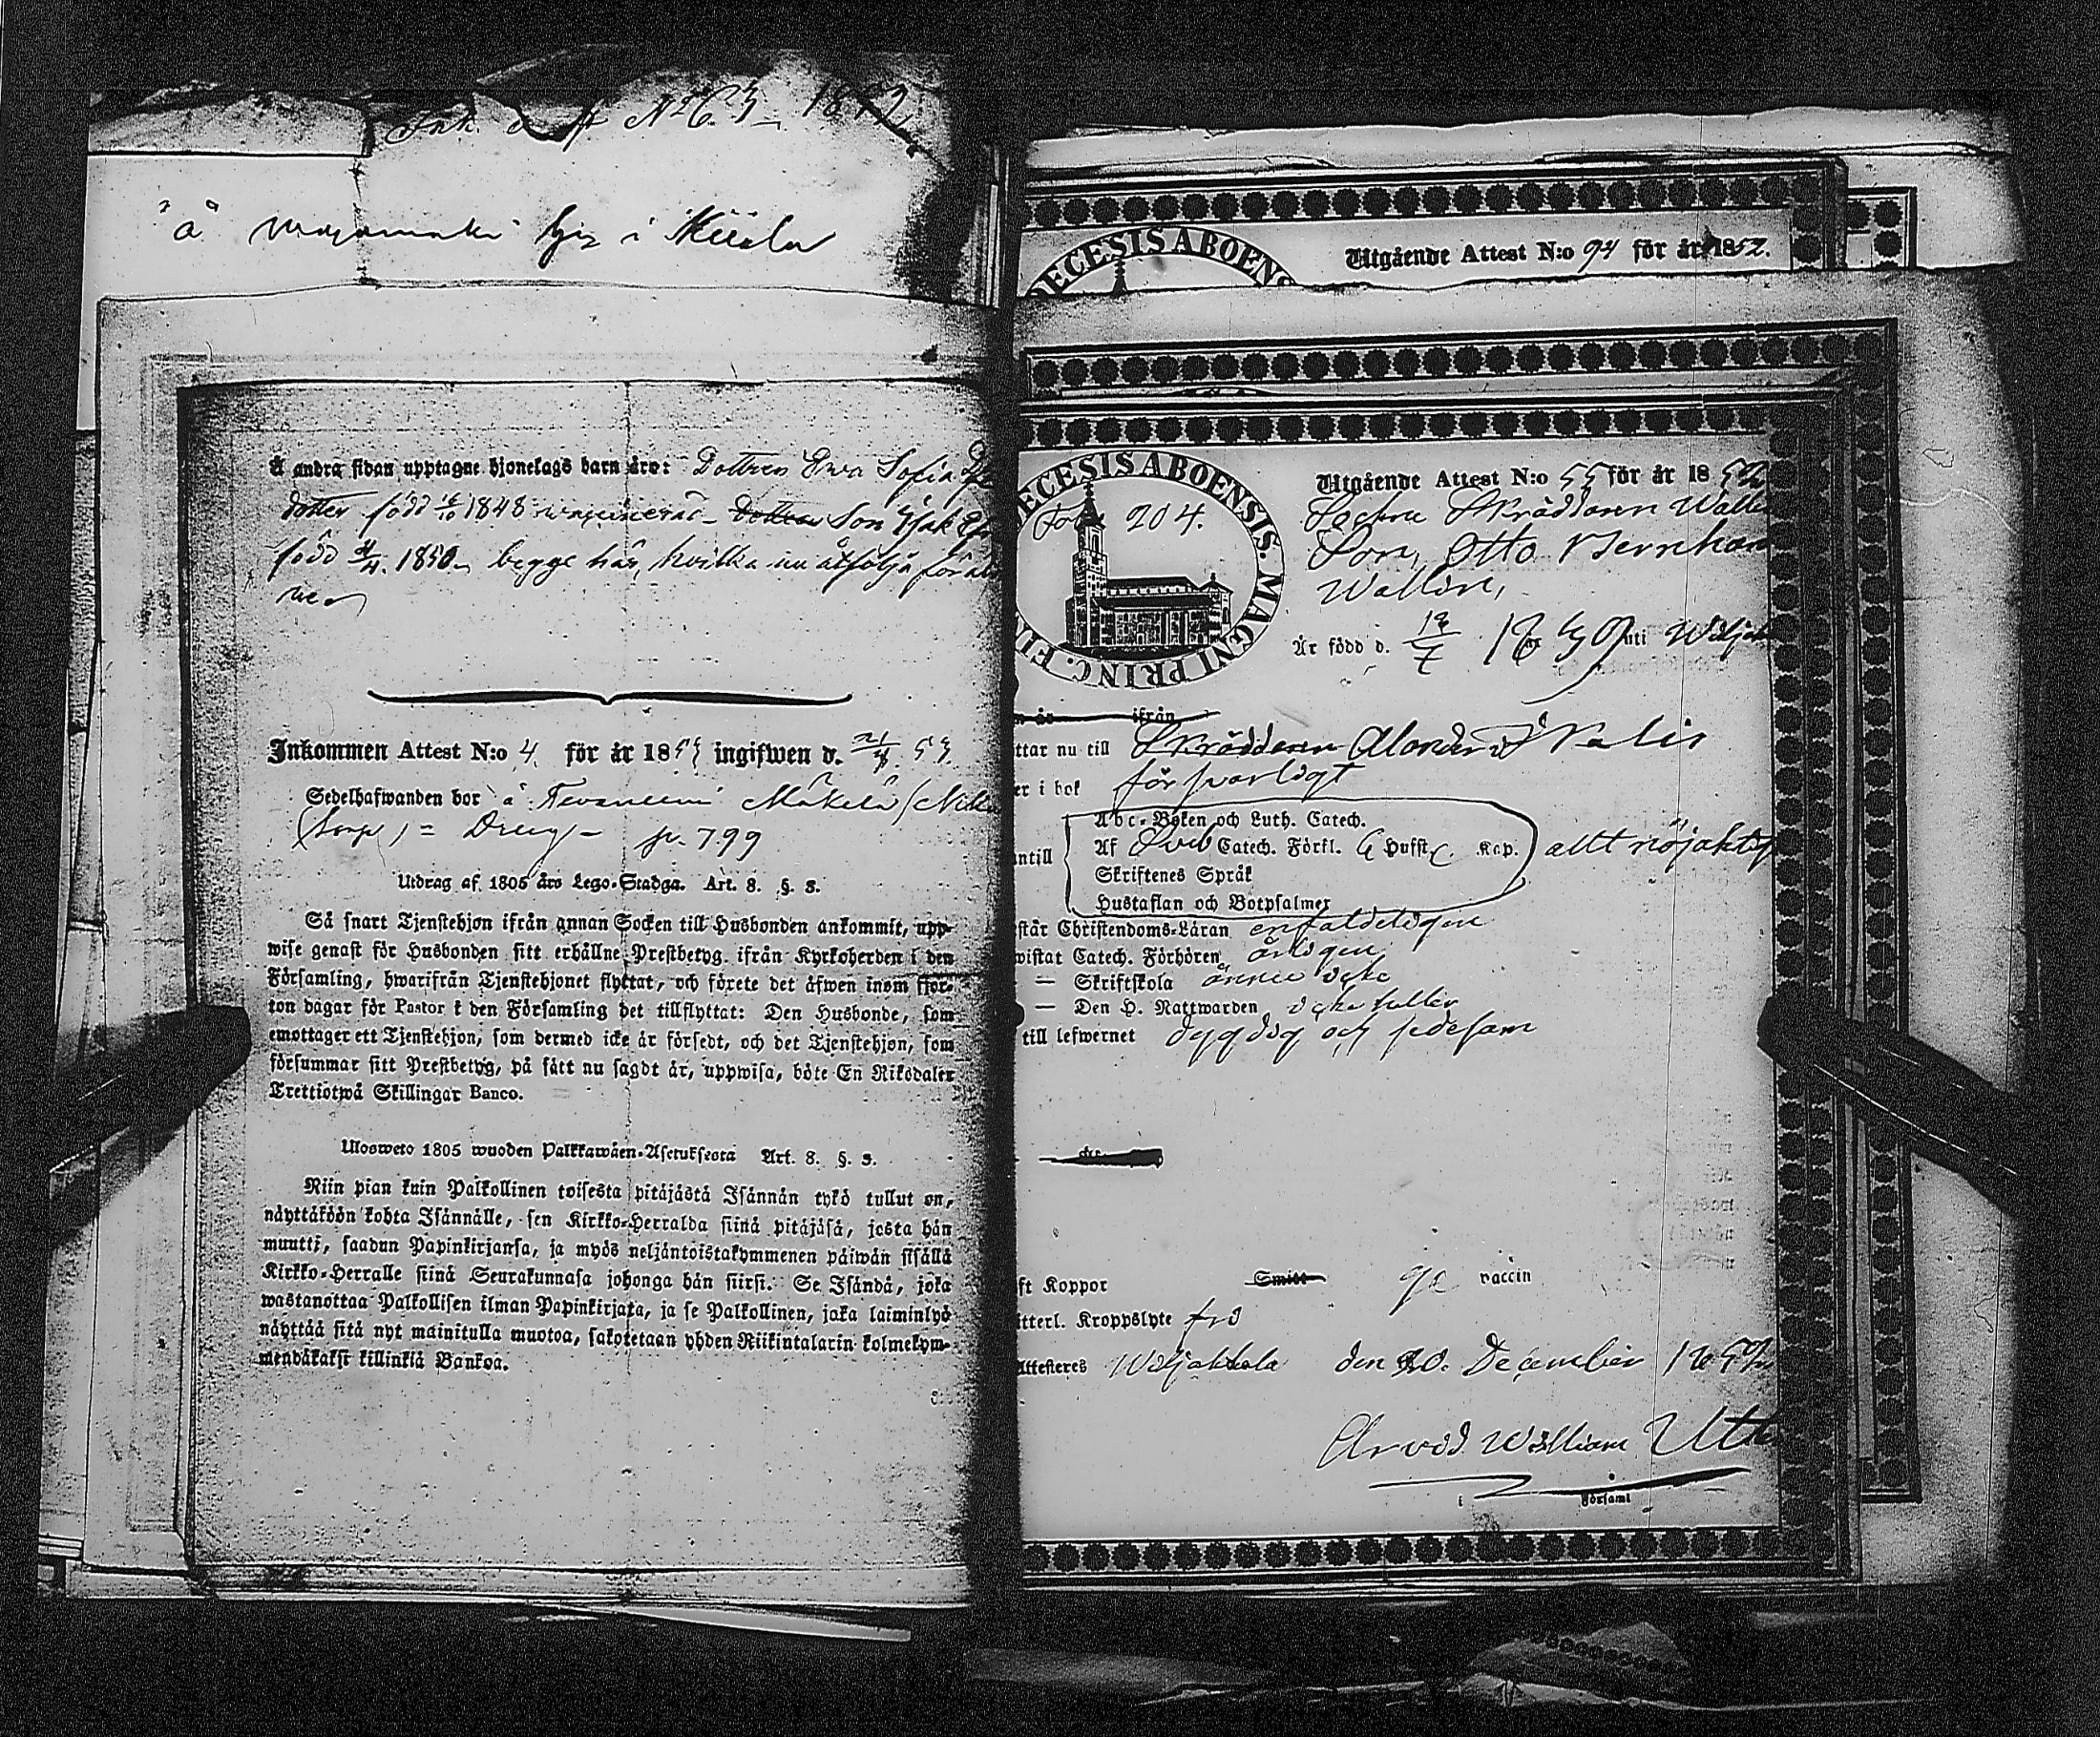 Ink. attest No 63 1852
"å" byn i Kiiala
Å andra sidan upptagne hjonelags barn äro: Dottren Ewa Sofia
dotter född 1848 vaccinerad - Son Isak
född 1850, begge här, hvilka nu åtfölja föräld
rne
Inkommen Attest N:o 4 för år 1853 ingifwen d. 21/4 53
Sedelhafwanden bor å Mäkelä
= Dreng - p. 799
Utdrag af 1805 års Lego-Stadga. Art. 8. §. 3.
Så snart Tjenstehjon ifrån annan Socken till Husbonden ankommit, upp-
wise genast för Husbonden sitt erhållne Prestbetyg ifrån Kyrkoherden i den
Församling, hwarifrån Tjenstehjonet flyttat, och förete det äfwen inom fjor-
ton dagar för Pastor i den Församling det tillflyttat: Den Husbonde, som
emottager ett Tjenstehjon, som dermed icke är försedt, och det Tjenstehjon, som
försummar sitt Prestbetyg, på sätt nu sagdt är, uppwisa, böte En Riksdaler
Trettiotwå Skillingar Banco.
Ulosweto 1805 wuoden Palkkawäen-Asetuksesta Art. 8. §. 3.
Niin pian kuin Palkollinen toisesta pitäjästä Isännän tykö tullut on,
näyttäköön kohta Isännälle, sen Kirkko-Herralda siinä pitäjäsä, josta hän
muutti, saadun Papinkirjansa, ja myös neljäntoistakymmenen päiwän sisällä
Kirkko-Herralle siinä Seurakunnasa johonga hän siirsi. Se Isändä, joka
wastanottaa Palkollisen ilman Papinkirjata, ja se Palkollinen, joka laiminlyö
näyttää sitä nyt mainitulla muotoa, sakotetaan yhden Riikintalarin kolmekym-
mendäkaksi killinkiä Bankoa.
DECESIS ABOENS
Utgående Attest N:o 94 för år 1852.
ECESIS ABOENSIS. MAGNI PRINC. FIN
Fol. 204.
Utgående Attest N:o 55 för år 1852
Sockne Skräddaren Wallin
Son, Otto Bernhard
Wallin,
Är född d. 18/7 1839 uti Wiljak
n är ifrån
ttar nu till Skräddaren i Salis
er i bok försvarligt
Abc-Boken och Luth. Catech.
ntill Af Sveb Catech. Förkl. Hufst. Kap. allt nöjaktig
Skriftenes Språk
Hustaflan och Botpsalmer
står Christendoms-Läran enfaldeligen
wistat Catech. Förhören årligen
— Skriftskola ännu icke
— Den H. Nattwarden icke heller
till lefwernet dygdig och sedesam
ft Koppor Smitt ge vaccin
itterl. Kroppslyte fri
Attesteres Wiljakkala den 20. December 1852
Arvid William
i Församl